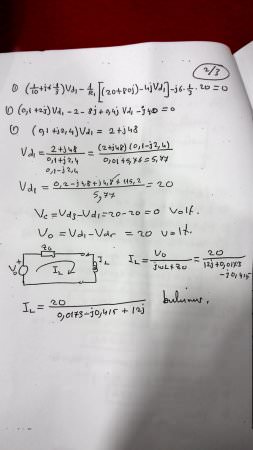 2/3
1) (1/10 + j6·1/3)Vd1 - 1/R1 [(20+80j) - 4jVd1] - j6·1/3·20 = 0
1) (0,1+2j)Vd1 - 2 - 8j + 0,4j Vd1 - j40 = 0
1) (0,1+j2,4)Vd1 = 2+j48
Vd1 = 2+j48 / 0,1+j2,4 = (2+j48)(0,1-j2,4) / 0,01+5,76=5,77
0,1-j2,4
Vd1 = 0,2-j4,8+j4,8+115,2 / 5,77 = 20
Vc = Vd3-Vd1 = 20-20 = 0 Volt.
Vo = Vd1-Vdr = 20 volt.
Zo
+ Vo IL jL
IL = Vo / jωL+Zo = 20 / 12j+0,0173-j0,415
IL = 20 / 0,0173-j0,415+12j bulunur.